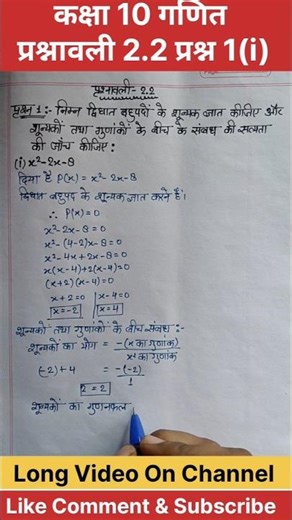 कक्षा 10 गणित
प्रश्नावली 2.2 प्रश्न 1(i)
प्रश्नावली - 2.2
प्रश्न 1 :- निम्न द्विघात बहुपदों के शून्यक ज्ञात कीजिए और
शून्यकों तथा गुणांकों के बीच के संबंध की सत्यता
की जाँच कीजिए :
(i) x²-2x-8
दिया है P(x) = x²-2x-8
द्विघात बहुपद के शून्यक ज्ञात करने हैं।
∴ P(x)=0
x²-2x-8=0
x²-(4-2)x-8=0
x²-4x+2x-8=0
x(x-4)+2(x-4)=0
(x+2)(x-4)=0
x+2=0 | x-4=0
x=-2 | x=4
शून्यकों तथा गुणांकों के बीच संबंध :-
शून्यकों का योग = -(x का गुणांक) / x² का गुणांक
(-2)+4 = -(-2) / 1
2=2
शून्यकों का गुणनफल
Long Video On Channel
Like Comment & Subscribe